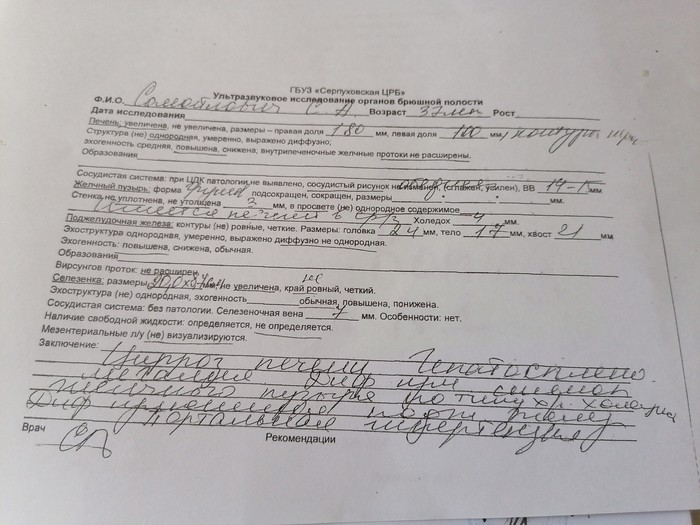 ГБУЗ «Серпуховская ЦРБ»
Ультразвуковое исследование органов брюшной полости
Ф.И.О. Самойлович С А Возраст 37лет Рост
Дата исследования
Печень: увеличена, не увеличена, размеры – правая доля 180 мм, левая доля 100 мм, контуры
Структура (не) однородная, умеренно, выражено диффузно;
эхогенность средняя, повышена, снижена; внутрипеченочные желчные протоки не расширены.
Образования
Сосудистая система: при ЦДК патологии не выявлено, сосудистый рисунок не изменен, (сглажен, усилен), ВВ 14-15 мм
Желчный пузырь: форма подсокращен, сокращен, размеры мм.
Стенка не уплотнена, не утолщена 3 мм, в просвете (не) однородное содержимое
Холедох 4 мм.
Поджелудочная железа: контуры (не) ровные, четкие. Размеры: головка 24 мм, тело 17 мм, хвост 21 мм.
Эхоструктура однородная, умеренно, выражено диффузно не однородная.
Эхогенность: повышена, снижена, обычная.
Образования
Вирсунгов проток: не расширен
Селезенка: размеры не увеличена, край не ровный, четкий.
Эхоструктура (не) однородная, эхогенность обычная, повышена, понижена.
Сосудистая система: без патологии. Селезеночная вена 7 мм. Особенности: нет.
Наличие свободной жидкости: определяется, не определяется.
Мезентериальные л/у (не) визуализируются.
Заключение: Цирроз печени Гепатосплено
мегалия Диф изм стенок
желчного пузыря по типу хр. холецис
Диф изменения подж желез
Портальная гипертензия
Врач
Рекомендации